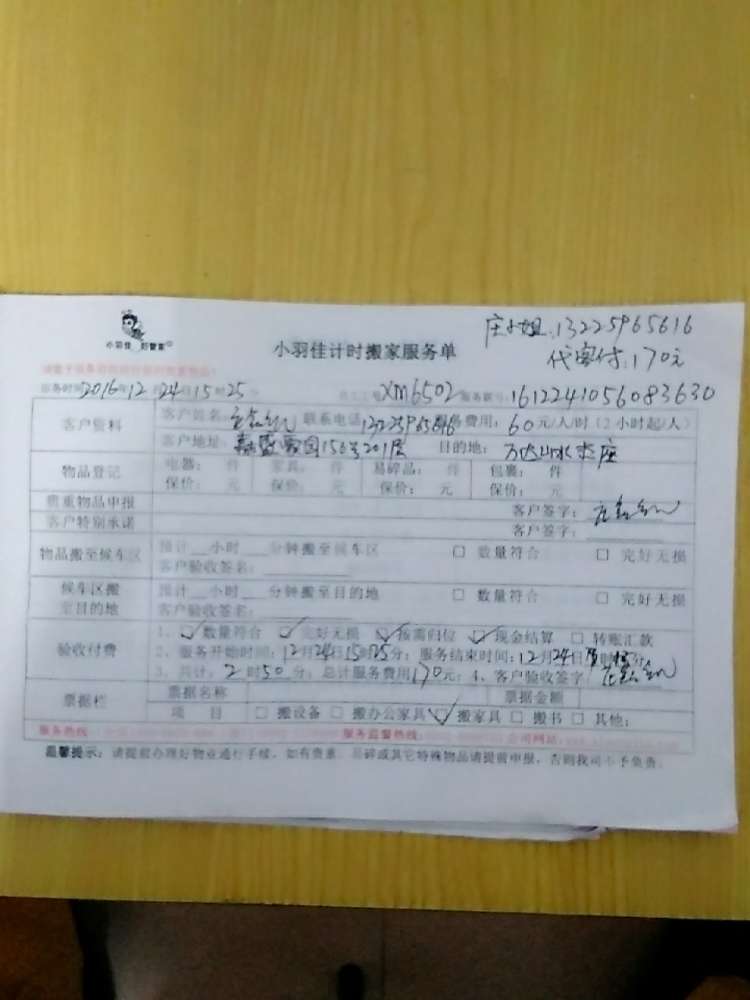 小羽佳 好管家
庄小姐:13225965616
代客付:170元
小羽佳计时搬家服务单
服务时间2016年12月24日15时25分 员工工号XM6502 服务联号:1612241056083630
客户资料 客户姓名: 联系电话13225965616 费用:60元/人/时(2小时起/人)
客户地址: 156号201 目的地:万达 座
物品登记 电器: 件 家具: 件 易碎品: 件 包裹: 件
保价: 元 保价: 元 保价: 元 保价: 元
贵重物品申报 客户签字:
客户特别承诺 客户签字:
物品搬至候车区 预计__小时__分钟搬至候车区 □ 数量符合 □ 完好无损
客户验收签名:
候车区搬至目的地 预计__小时__分钟搬至目的地 □ 数量符合 □ 完好无损
客户验收签名:
验收付费 1、☑数量符合 ☑完好无损 ☑按需归位 ☑现金结算 □ 转账汇款
2、服务开始时间:12月24日15时25分;服务结束时间:12月24日 时 分
3、共计:2时50分;总计服务费用170元;4、客户验收签字
票据栏 票据名称 票据金额
项 目 □ 搬设备 □ 搬办公家具 ☑搬家具 □ 搬书 □ 其他:
服务热线: 服务监督热线: 公司网站:
温馨提示:请提前办理好物业通行手续,如有贵重、易碎或其它特殊物品请提前申报,否则我司不予负责。